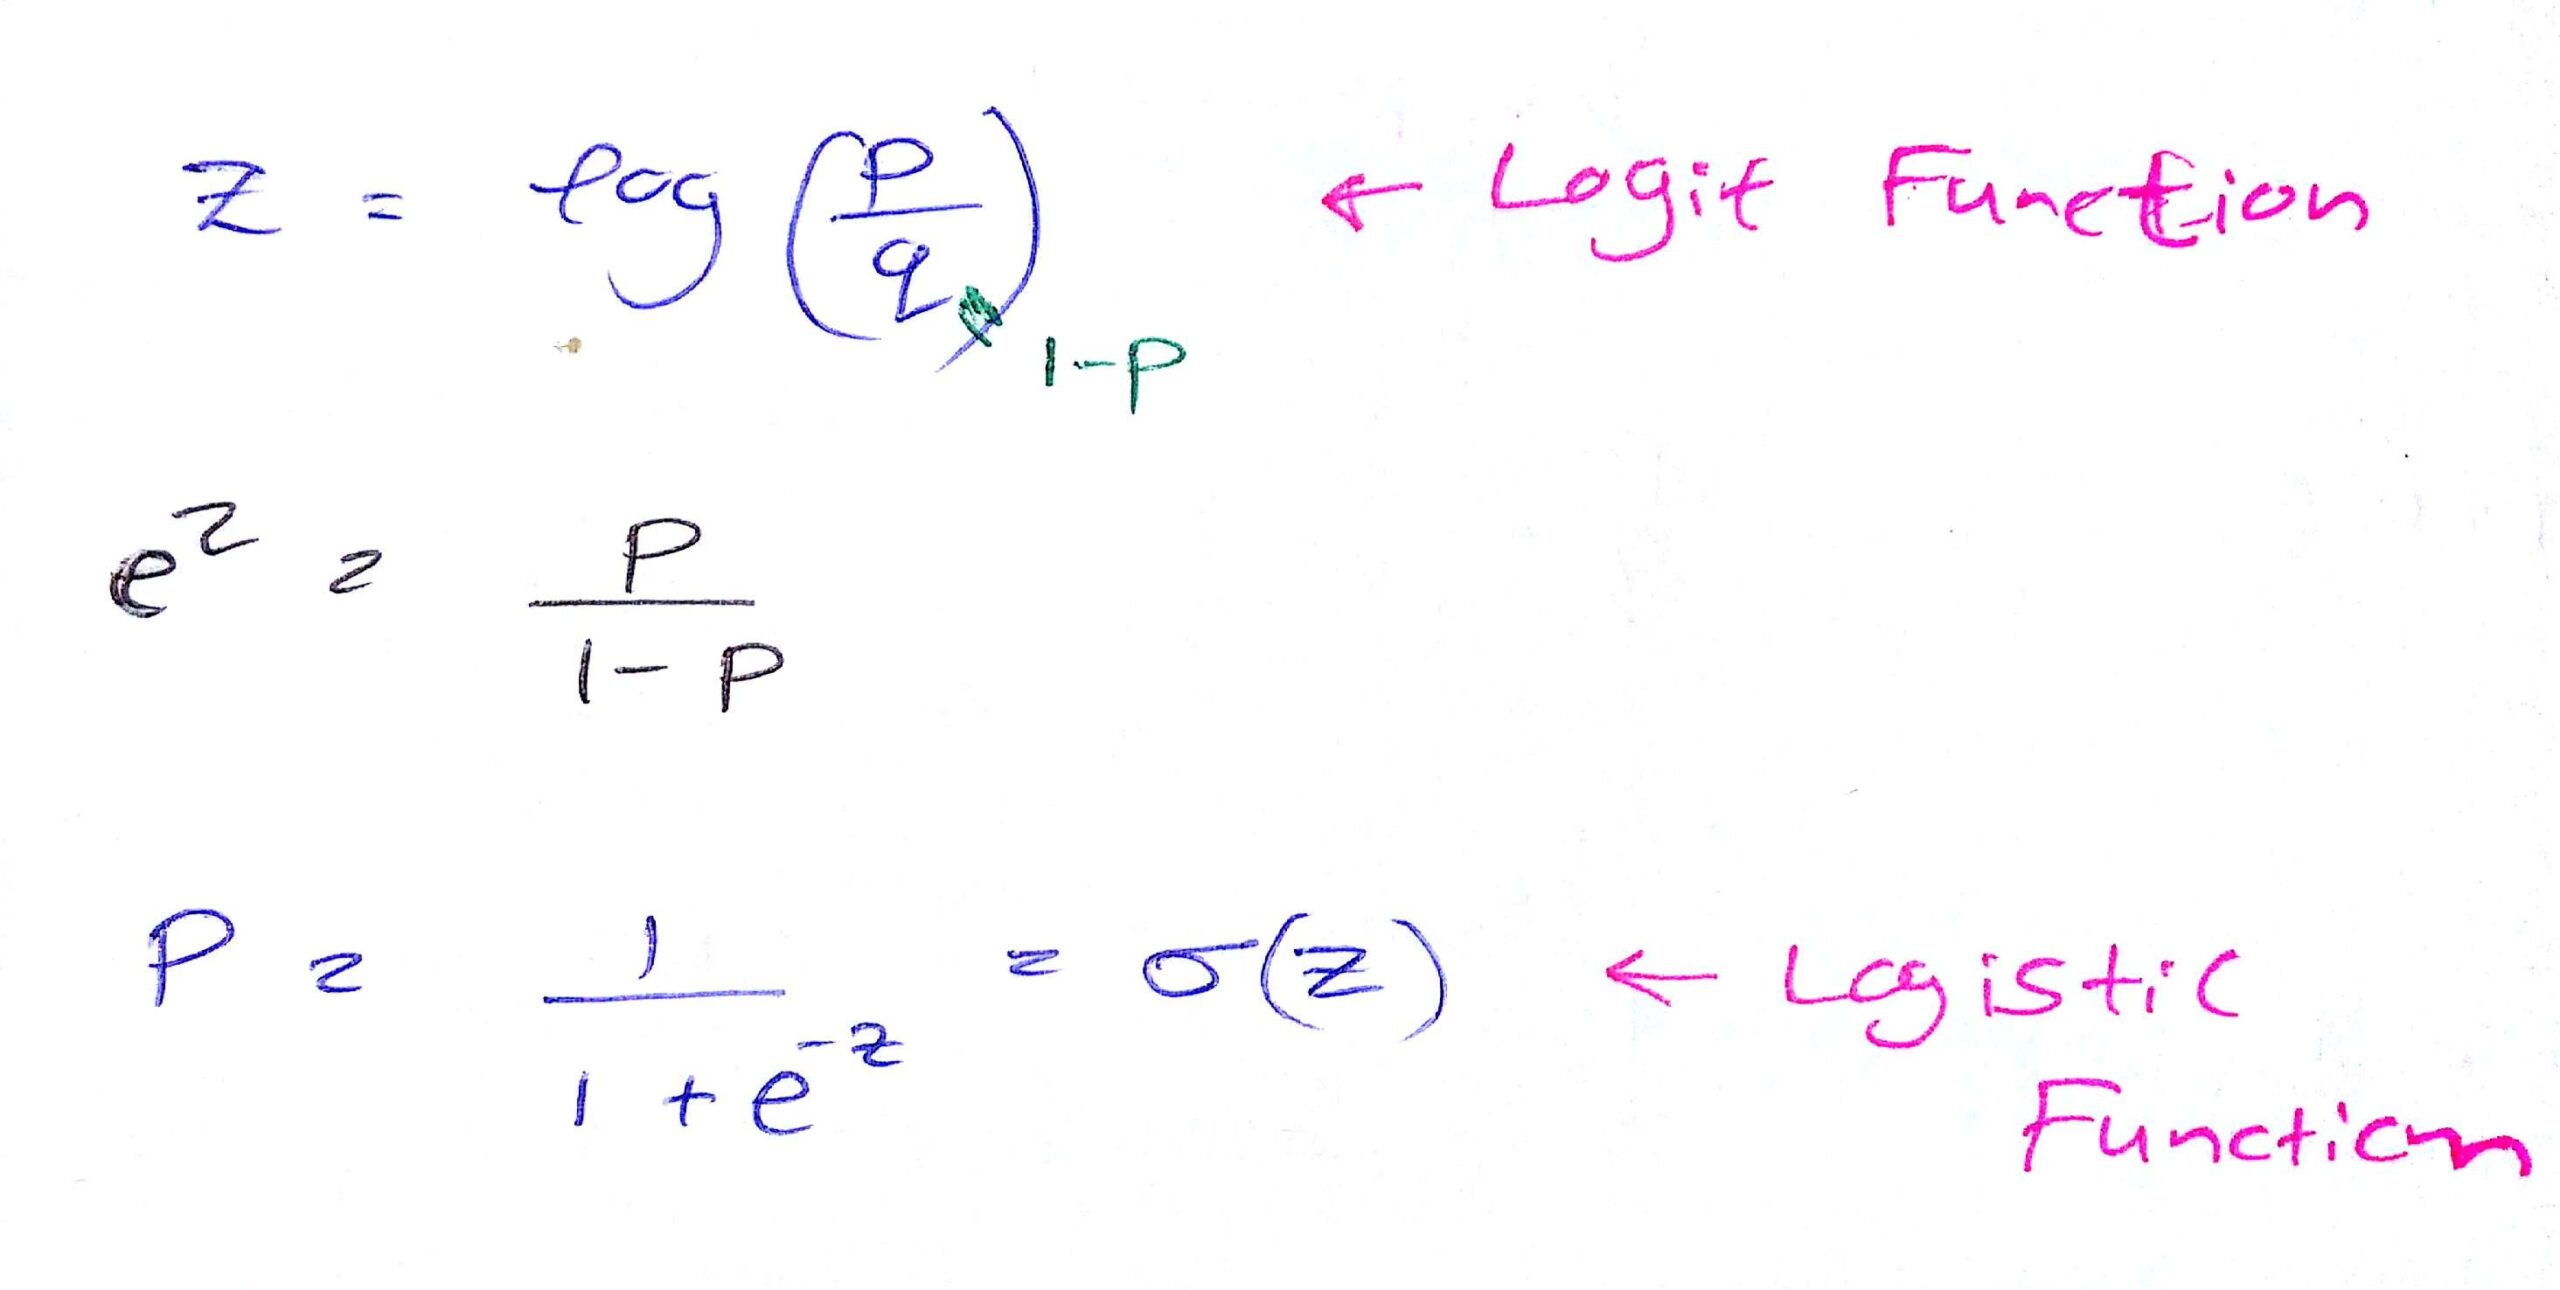 z = log(p/q) ← Logit Function
1-p
e^z = p/(1-p)
p = 1/(1+e^-z) = σ(z) ← Logistic
Function